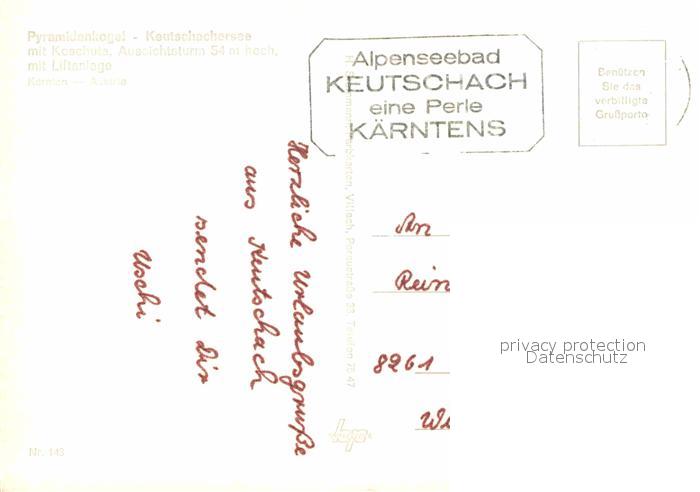 Pyramidenkogel - Keutschachersee
mit Koschuta, Aussichtsturm 54 m hoch,
mit Liftanlage
Kärnten — Austria
Alpenseebad
KEUTSCHACH
eine Perle
KÄRNTENS
Benützen
Sie das
verbilligte
Grußporto
Herzliche Urlaubsgrüße
aus Keutschach
sendet Dir
Uschi
Villach, Peraustraße 23, Telefon 75 47
An
Rein
8261
We
privacy protection
Datenschutz
Nr. 143